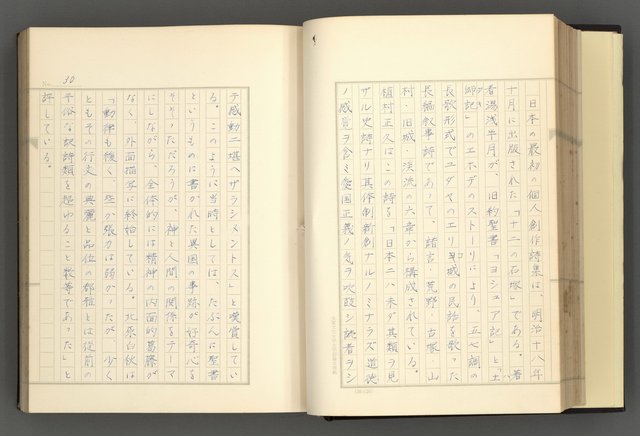 日本の最初の個人創作詩集は、明治十八年
十月に出版された「十二の石塚」である。著
者湯浅半月が、旧約聖書「ヨシュア記」と「士
師記」のエホデのストーリにより、五七調の
長歌形式でユダヤのエリコ城の民話を歌った
長編叙事詩であって、緒言・荒野・古塚・山
村・旧城・渓流の六章から構成されている。
植村正久はこの詩を「日本ニハ未ダ其類ヲ見
ザル史詩ナリ其体制新創ナルノミナラズ道徳
ノ感覚ヲ含ミ愛国正義ノ気ヲ吹鼓シ読者ヲシ
テ感動ニ堪ヘザラシメントス」と嘆賞してい
る。このように当時としては、たぶんに聖書
というものに書かれた異国の事跡が好奇心を
そそっただろうが、神と人間の関係をテーマ
にしながら、全体的には精神の内面的葛藤が
なく、外面描写に終始している。北原白秋は
「動律も緩く、些か張力は弱かったが、少く
ともその行文の典麗と品位の都雅とは従前の
平俗な訳詩類を超ゆること数等であった」と
評している。
No. 30